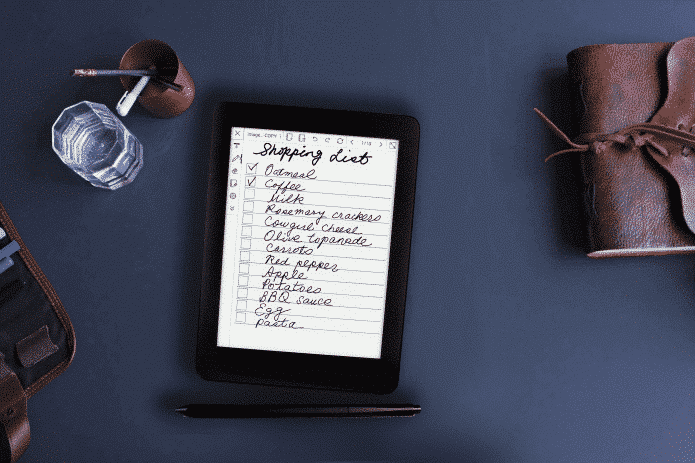 Image... COPY
1/18
Shopping List
Oatmeal
Coffee
Milk
Rosemary crackers
Cowgirl cheese
Olive topanade
Carrots
Red pepper
Apple
Potatoes
BBQ sauce
Egg
Pasta